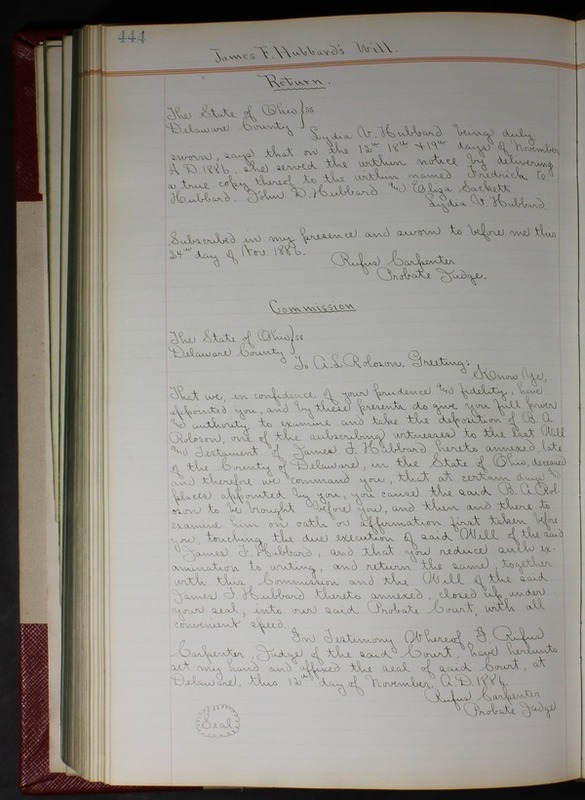 444
James F. Hubbard's Will.
Return.
The State of Ohio } ss
Delaware County }
Lydia V. Hubbard being duly
sworn, says that on the 12th 18th & 19th days of November
A.D. 1886, she served the within notice by delivering
a true copy thereof to the within named Fredrick E
Hubbard, John D. Hubbard & Eliza Sackett
Lydia V. Hubbard
Subscribed in my presence and sworn to before me this
24th day of Nov. 1886.
Rufus Carpenter
Probate Judge.
Commission
The State of Ohio } ss
Delaware County }
To A.S. Roloson, Greeting:
Know Ye,
That we, in confidence of your prudence & fidelity, have
appointed you, and by these presents do give you full power
& authority to examine and take the deposition of B. A.
Roloson, one of the subscribing witnesses to the last Will
& Testament of James F. Hubbard hereto annexed, late
of the County of Delaware, in the State of Ohio, deceased
and therefore we command you, that at certain days &
places appointed by you, you cause the said B. A. Rol-
oson to be brought before you, and then and there to
examine him on oath or affirmation first taken before
you, touching the due execution of said Will of the said
James F. Hubbard, and that you reduce such ex-
amination to writing, and return the same, together
with this Commission and the Will of the said
James F. Hubbard thereto annexed, closed up under
your seal, into our said Probate Court, with all
convenient speed.
In Testimony Whereof I, Rufus
Carpenter, Judge of the said Court, have hereunto
set my hand and affixed the seal of said Court, at
Delaware, this 12th day of November A.D. 1886.
Rufus Carpenter
Probate Judge
Seal